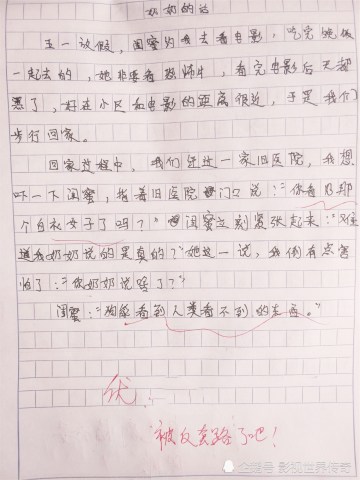 奶奶的话
五一放假，闺蜜约我去看电影，吃完晚饭
一起去的，她非要看恐怖片，看完电影后天都
黑了，好在小区和电影的距离很近，于是我们
步行回家。
回家过程中，我们还过一家旧医院，我想
吓一下闺蜜，指着旧医院门口说：“你看见那
个白衣女子了吗？”闺蜜立刻紧张起来：“难
道我奶奶说的是真的？”她这一说，我倒有点害
怕了：“你奶奶说啥了？”
闺蜜：“狗能看到人类看不到的东西。”
优
被反套路了吧！
企鹅号 影视世界传奇